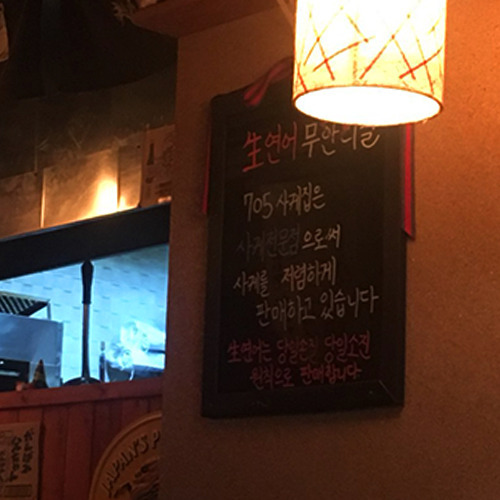 生연어 무한리필
705 사케집은
사케전문점으로써
사케를 저렴하게
판매하고 있습니다
生연어는 당일손질 당일소진
원칙으로 판매합니다
JAPAN'S